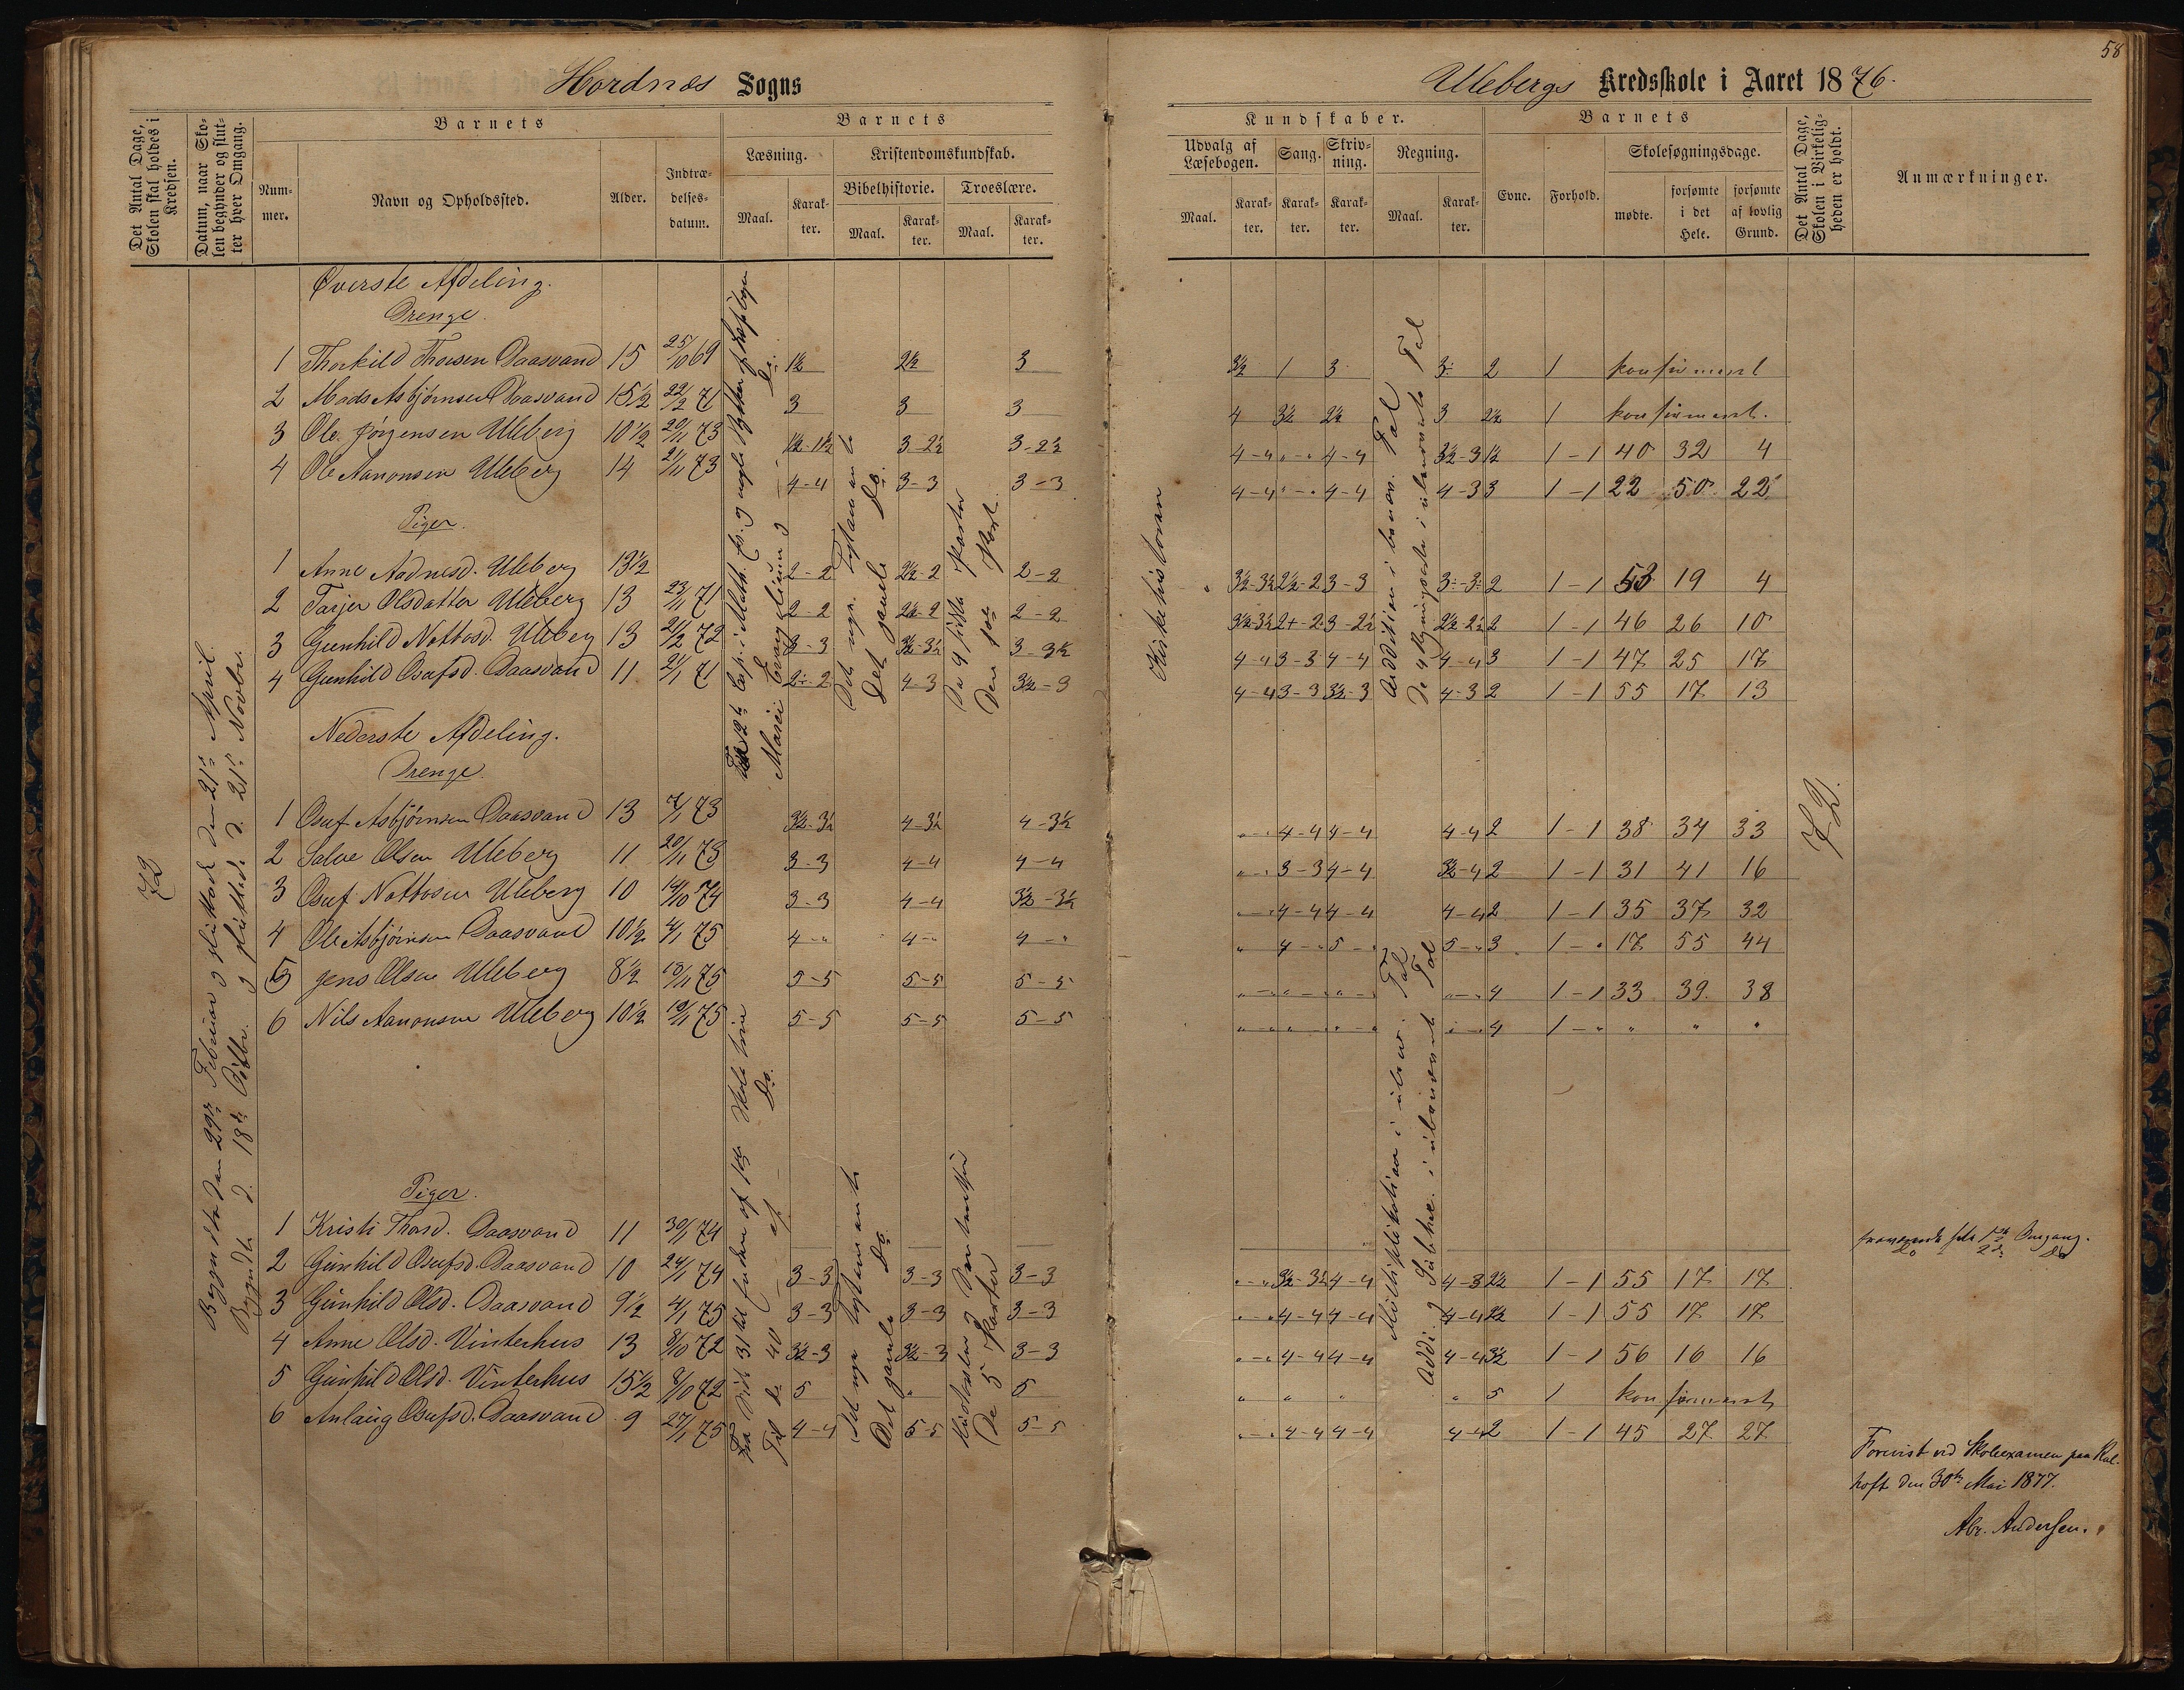 58
Hordnæs Sogns
Ulebergs Kredsskole i Aaret 1876.
Det Antal Dage, Skolen skal holdes i Kredsen.
Datum, naar Skolen begynder og slutter hver Omgang.
Barnets
Nummer.
Navn og Opholdssted.
Alder.
Indtrædelsesdatum.
Barnets
Læsning.
Kristendomskundskab.
Maal.
Karakter.
Bibelhistorie.
Troeslære.
Maal.
Karakter.
Maal.
Karakter.
Kundskaber.
Udvalg af Læsebogen.
Sang.
Skrivning.
Regning.
Maal.
Karakter.
Karakter.
Karakter.
Maal.
Karakter.
Barnets
Evne.
Forhold.
Skolesøgningsdage.
mødte.
forsømte i det Hele.
forsømte af lovlig Grund.
Det Antal Dage, Skolen i Virkeligheden er holdt.
Anmærkninger.
72
Begyndte den 29de Februar og sluttede den 21de April.
Begyndte d. 18de Octbr. og sluttede d. 21de Novbr.
Øverste Afdeling.
Drenge.
1 Thorkild Thorsen Daasvand 15 25/10 69 1½ 2½ 3 3½ 1 3 3÷ 2 1 konfirmeret
2 Mads Asbjørnsen Daasvand 15½ 22/2 71 3 3 3 4 3½ 2½ 3 2½ 1 konfirmeret.
3 Ole Jørgensen Uleberg 10½ 20/11 73 1½-1½ 3-2½ 3-2½ 4-4 "-" 4-4 3½-3 1½ 1-1 40 32 4
4 Ole Aanonsen Uleberg 14 21/11 73 4-4 3-3 3-3 4-4 "-" 4-4 4-3 3 1-1 22 50 22
Piger.
1 Anne Aadnesd. Uleberg 13½ 2-2 2½-2 2-2 3½-3½ 2½-2 3-3 3÷-3÷ 2 1-1 53 19 4
2 Tarjer Olsdatter Uleberg 13 23/11 71 2-2 2½-2 2-2 3½-3½ 2+-2 3-2½ 2½-2½ 2 1-1 46 26 10
3 Gunhild Nottosd. Uleberg 13 21/2 72 3-3 3½-3½ 3-3½ 4-4 3-3 4-4 4-4 3 1-1 47 25 17
4 Gunhild Osufsd. Daasvand 11 21/1 71 2÷-2 4-3 3½-3 4-4 3-3 3½-3 4-3 2 1-1 55 17 13
Marci Evangelium
Det nye Testamente
Det gamle Do.
De 4 sidste Parter
Den Part.
Kirkehistorien
Addition i benævn. Tal
De 4 Regningsarter i ubenævnte Tal
Nederste Afdeling.
Drenge.
1 Osuf Asbjørnsen Daasvand 13 7/1 73 3½-3½ 4-3½ 4-3½ "-" 4-4 4-4 4-4 2 1-1 38 34 33
2 Salve Olsen Uleberg 11 20/11 73 3-3 4-4 4-4 "-" 3-3 4-4 3½-4 2 1-1 31 41 16
3 Osuf Nottosen Uleberg 10 14/10 74 3-3 4-4 3½-3½ "-" 4-4 4-4 4-4 2 1-1 35 37 32
4 Ole Asbjørnsen Daasvand 10½ 4/1 75 4-" 4-" 4-" " 4-" 5-" 5-" 3 1-" 17 55 44
5 Jens Olsen Uleberg 8½ 13/11 75 5-5 5-5 5-5 "-" "-" "-" "-" 4 1-1 33 39 38
6 Nils Aanonsen Uleberg 10½ 19/11 75 5-5 5-5 5-5 "-" "-" "-" "-" 4 1-" " " "
72.
Piger.
1 Kristi Thorsd. Daasvand 11 30/1 74 fraværende hele 1ste Omgang.
Do 2de Do
2 Gunhild Osufsd. Daasvand 10 24/1 74 3-3 3-3 3-3 "-" 3½-3½ 4-4 4-3 2½ 1-1 55 17 17
3 Gunhild Olsd. Daasvand 9½ 4/1 75 3-3 3-3 3-3 "-" 4-4 4-4 4-4 2½ 1-1 55 17 17
4 Anne Olsd. Vinterhus 13 8/10 72 3½-3 3½-3 3-3 "-" 4-4 4-4 4-4 3½ 1-1 56 16 16
5 Gunhild Olsd. Vinterhus 15½ 8/10 72 5 " 5 " " " " 5 1 konfirmeret
6 Anlaug Osufsd. Daasvand 9 27/1 75 4-4 5-5 5-5 "-" 4-4 4-4 4-4 2 1-1 45 27 27
Det nye Testamente
Det gamle Do.
De 5 Parter
Multiplikation i ubenæv. Tal
Addi. og Subtrac. i ubenævnt Tal
Forevist ved Skoleexamen paa
den 30te Mai 1877.
Abr. Andersen.